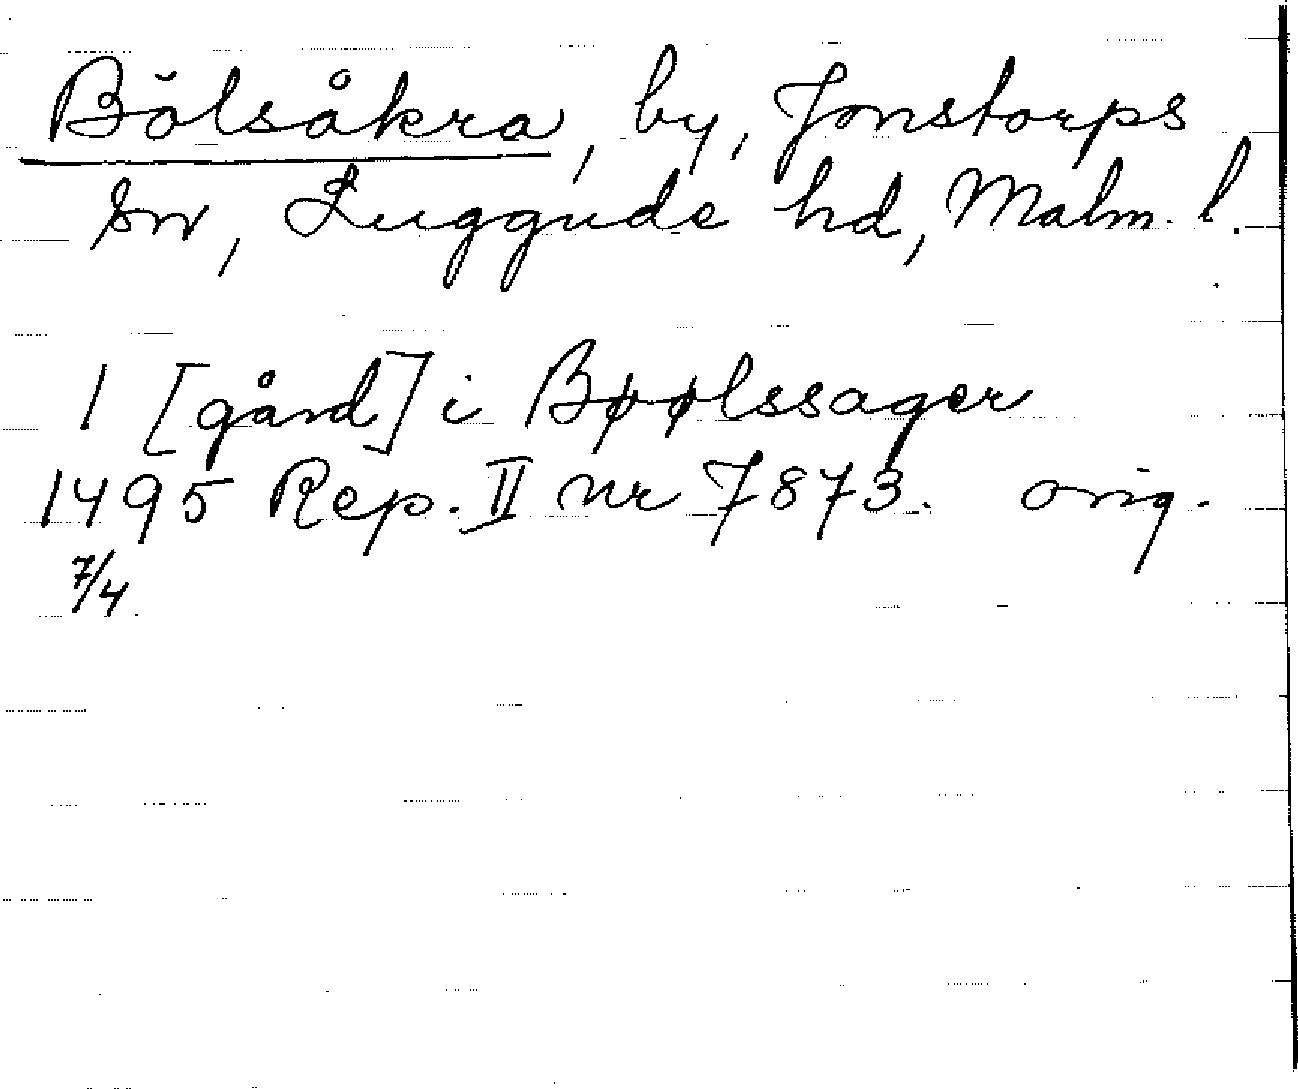 Bölsåkra, by, Jonstorps
sn, Luggude hd, Malm. l.
1 [gård] i Bøølssager
1495 Rep. II nr 7873. orig.
7/4